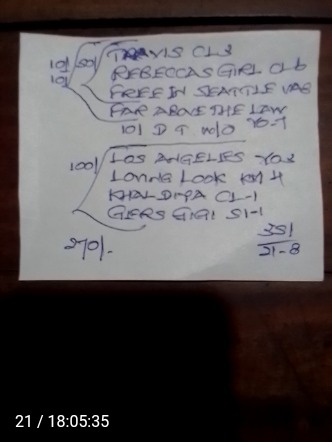 10/ 50/ TRAVIS CL3
10/ REBECCAS GIRL CL6
FREE IN SEATTLE VAS
FAR ABOVE THE LAW
10/ D T W/O YO-7
100/ LOS ANGELIES YO3
LOVING LOOK KM 4
KHALDIYA CL-1
GERS GIGI S1-1
270/-
351
21-8
21 / 18:05:35